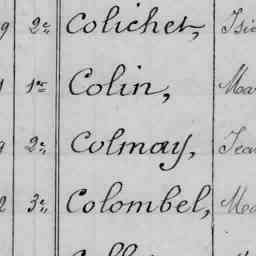 9 2e Colichet, Isi
1 1re Colin, Ma
9 2e Colmay, Jea
2 3e Colombel, Me